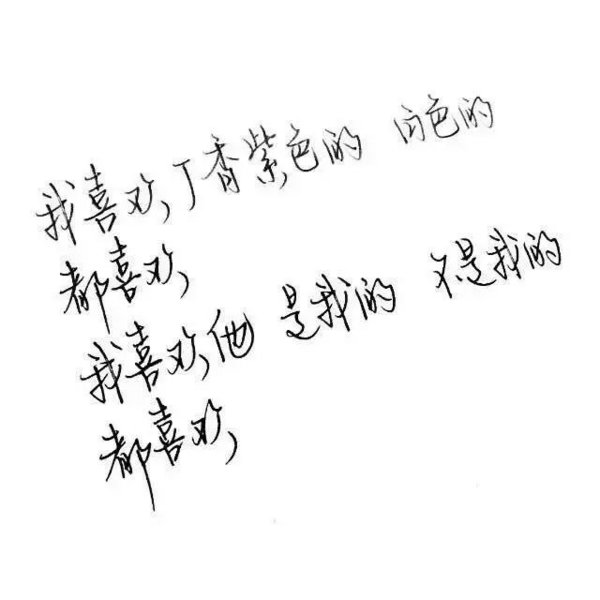 我喜欢丁香紫色的 白色的
都喜欢
我喜欢他 是我的 不是我的
都喜欢